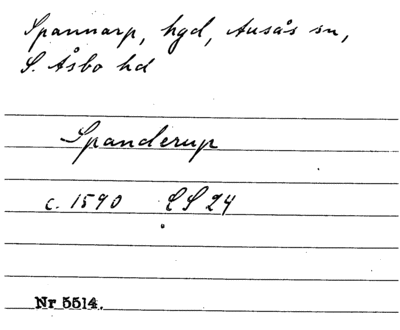 Spannarp, hgd, Ausås sn,
S. Åsbo hd
Spanderup
c. 1590 LS 24
Nr 5514.